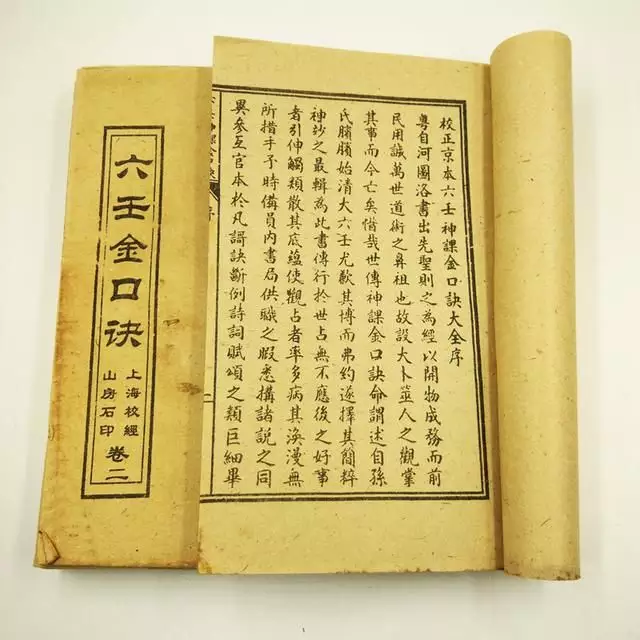 校正京本六壬神課金口訣大全序
粤自河圖洛書出先聖則之為經以開物成務而前
民用誠萬世道術之鼻祖也故設大卜筮人之觀掌
其事而今亡矣惜哉世傳神課金口訣命謂述自孫
氏臏臏始清大六壬尤歉其博而弗約遂擇其簡粹
神妙之最輯為此書傳行於世占無不應後之好事
者引伸觸類散其底蘊使觀占者率多病其渙漫無
所措手予時備員內書局供職之暇悉搆諸說之同
異參互官本於凡謌訣斷例詩詞賦頌之類巨細畢
六壬金口诀
上海校經
山房石印
卷二